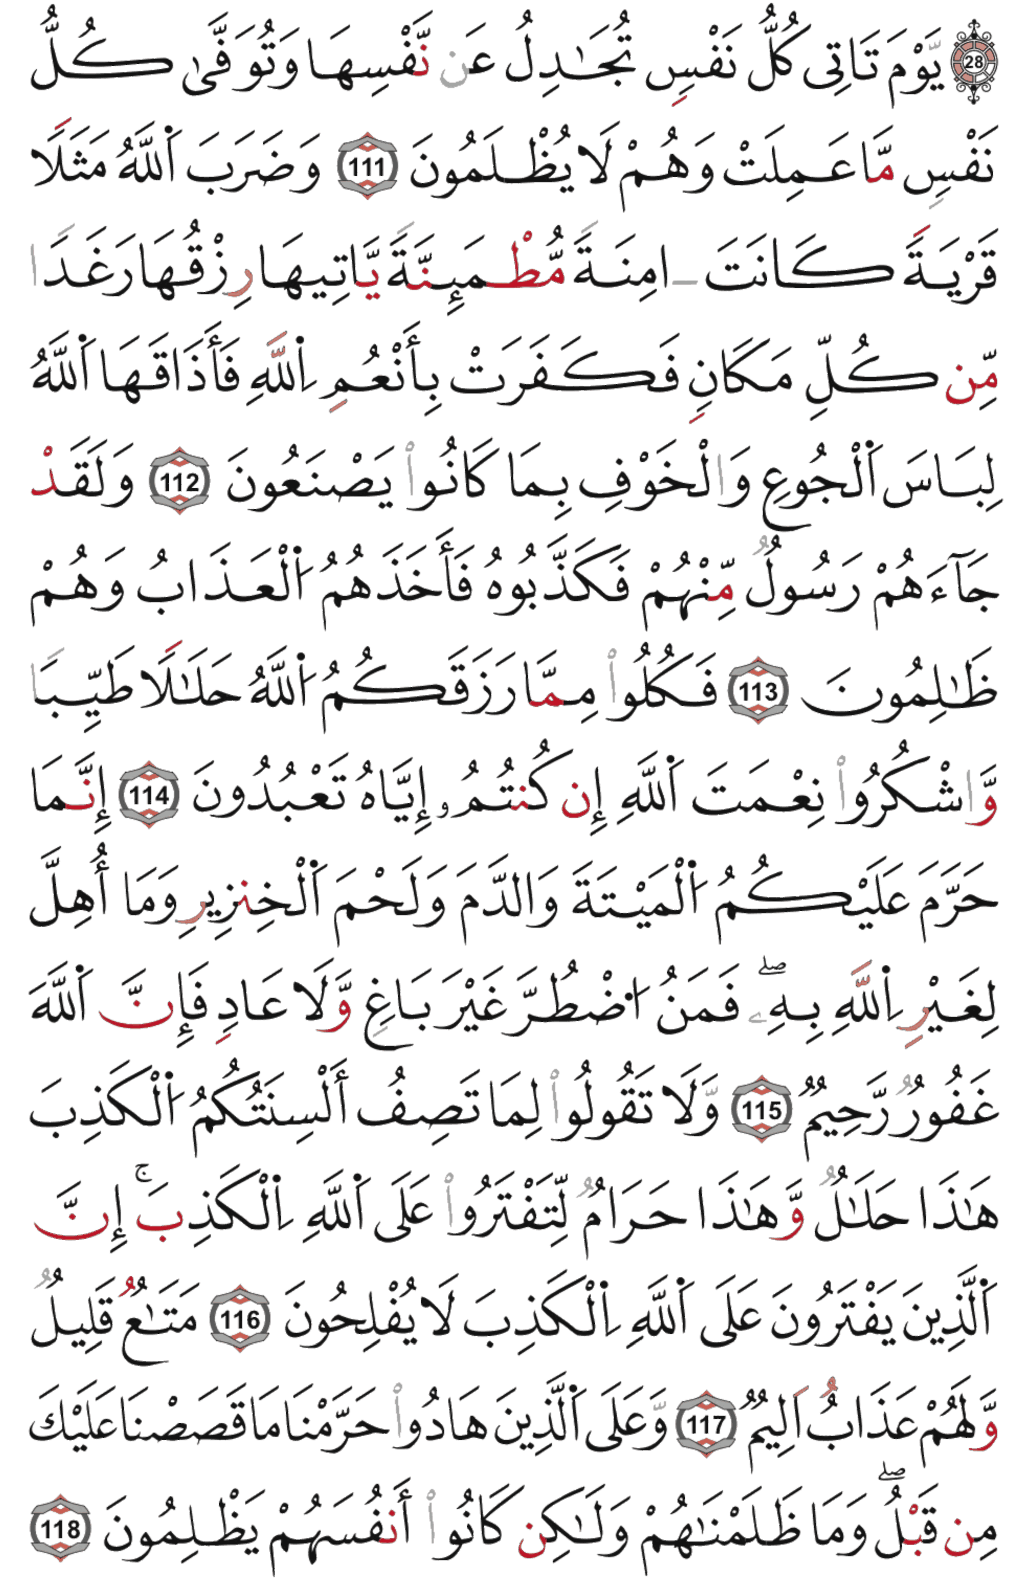 28 يَّوْمَ تَاتِى كُلُّ نَفْسٍ تُجَـٰدِلُ عَن نَّفْسِهَا وَتُوَفَّىٰ كُلُّ
نَفْسٍ مَّا عَمِلَتْ وَهُمْ لَا يُظْلَمُونَ 111 وَضَرَبَ اَ۬للَّهُ مَثَلًا
قَرْيَةً كَانَتَ ـ امِنَةً مُّطْمَئِنَّةً يَّاتِيهَا رِزْقُهَا رَغَدًا
مِّن كُلِّ مَكَانٍ فَكَفَرَتْ بِأَنْعُمِ اِ۬للَّهِ فَأَذَاقَهَا اَ۬للَّهُ
لِبَاسَ اَ۬لْجُوعِ وَالْخَوْفِ بِمَا كَانُوا۟ يَصْنَعُونَ 112 وَلَقَدْ
جَآءَهُمْ رَسُولٌ مِّنْهُمْ فَكَذَّبُوهُ فَأَخَذَهُمُ اُ۬لْعَذَابُ وَهُمْ
ظَـٰلِمُونَ 113 فَكُلُوا۟ مِمَّا رَزَقَكُمُ اُ۬للَّهُ حَلَـٰلًا طَيِّبًا
وَّاشْكُرُوا۟ نِعْمَتَ اَ۬للَّهِ إِن كُنتُمُۥ إِيَّاهُ تَعْبُدُونَ 114 إِنَّمَا
حَرَّمَ عَلَيْكُمُ اُ۬لْمَيْتَةَ وَالدَّمَ وَلَحْمَ اَ۬لْخِنزِيرِ وَمَا أُهِلَّ
لِغَيْرِ اِ۬للَّهِ بِهِۦۖ فَمَنُ اُ۟ضْطُرَّ غَيْرَ بَاغٍ وَّلَا عَادٍ فَإِنَّ اَ۬للَّهَ
غَفُورٌ رَّحِيمٌ 115 وَّلَا تَقُولُوا۟ لِمَا تَصِفُ أَلْسِنَتُكُمُ اُ۬لْكَذِبَ
هَـٰذَا حَلَـٰلٌ وَّهَـٰذَا حَرَامٌ لِّتَفْتَرُوا۟ عَلَى اَ۬للَّهِ اِ۬لْكَذِبَۚ إِنَّ
اَ۬لَّذِينَ يَفْتَرُونَ عَلَى اَ۬للَّهِ اِ۬لْكَذِبَ لَا يُفْلِحُونَ 116 مَتَـٰعٌ قَلِيلٌ
وَّلَهُمْ عَذَابٌ اَلِيمٌ 117 وَّعَلَى اَ۬لَّذِينَ هَادُوا۟ حَرَّمْنَا مَا قَصَصْنَا عَلَيْكَ
مِن قَبْلُۖ وَمَا ظَلَمْنَـٰهُمْ وَلَـٰكِن كَانُوا۟ أَنفُسَهُمْ يَظْلِمُونَ 118